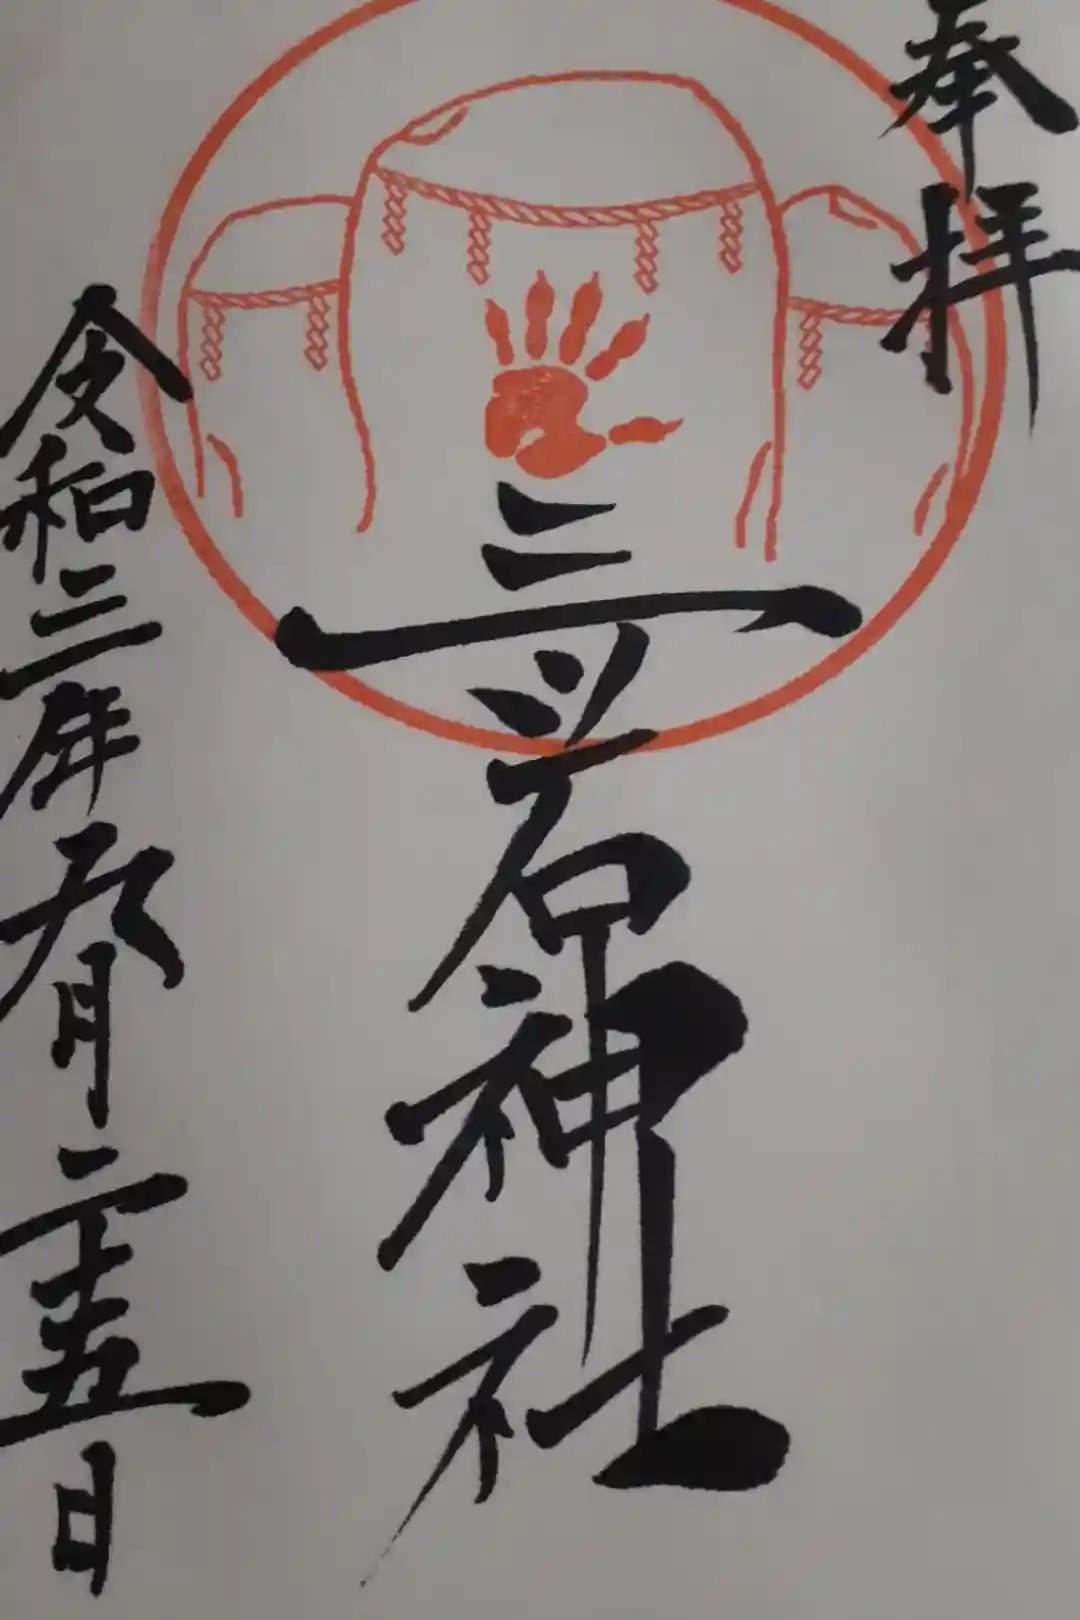 奉拝
三ツ石神社
令和三年九月二十五日